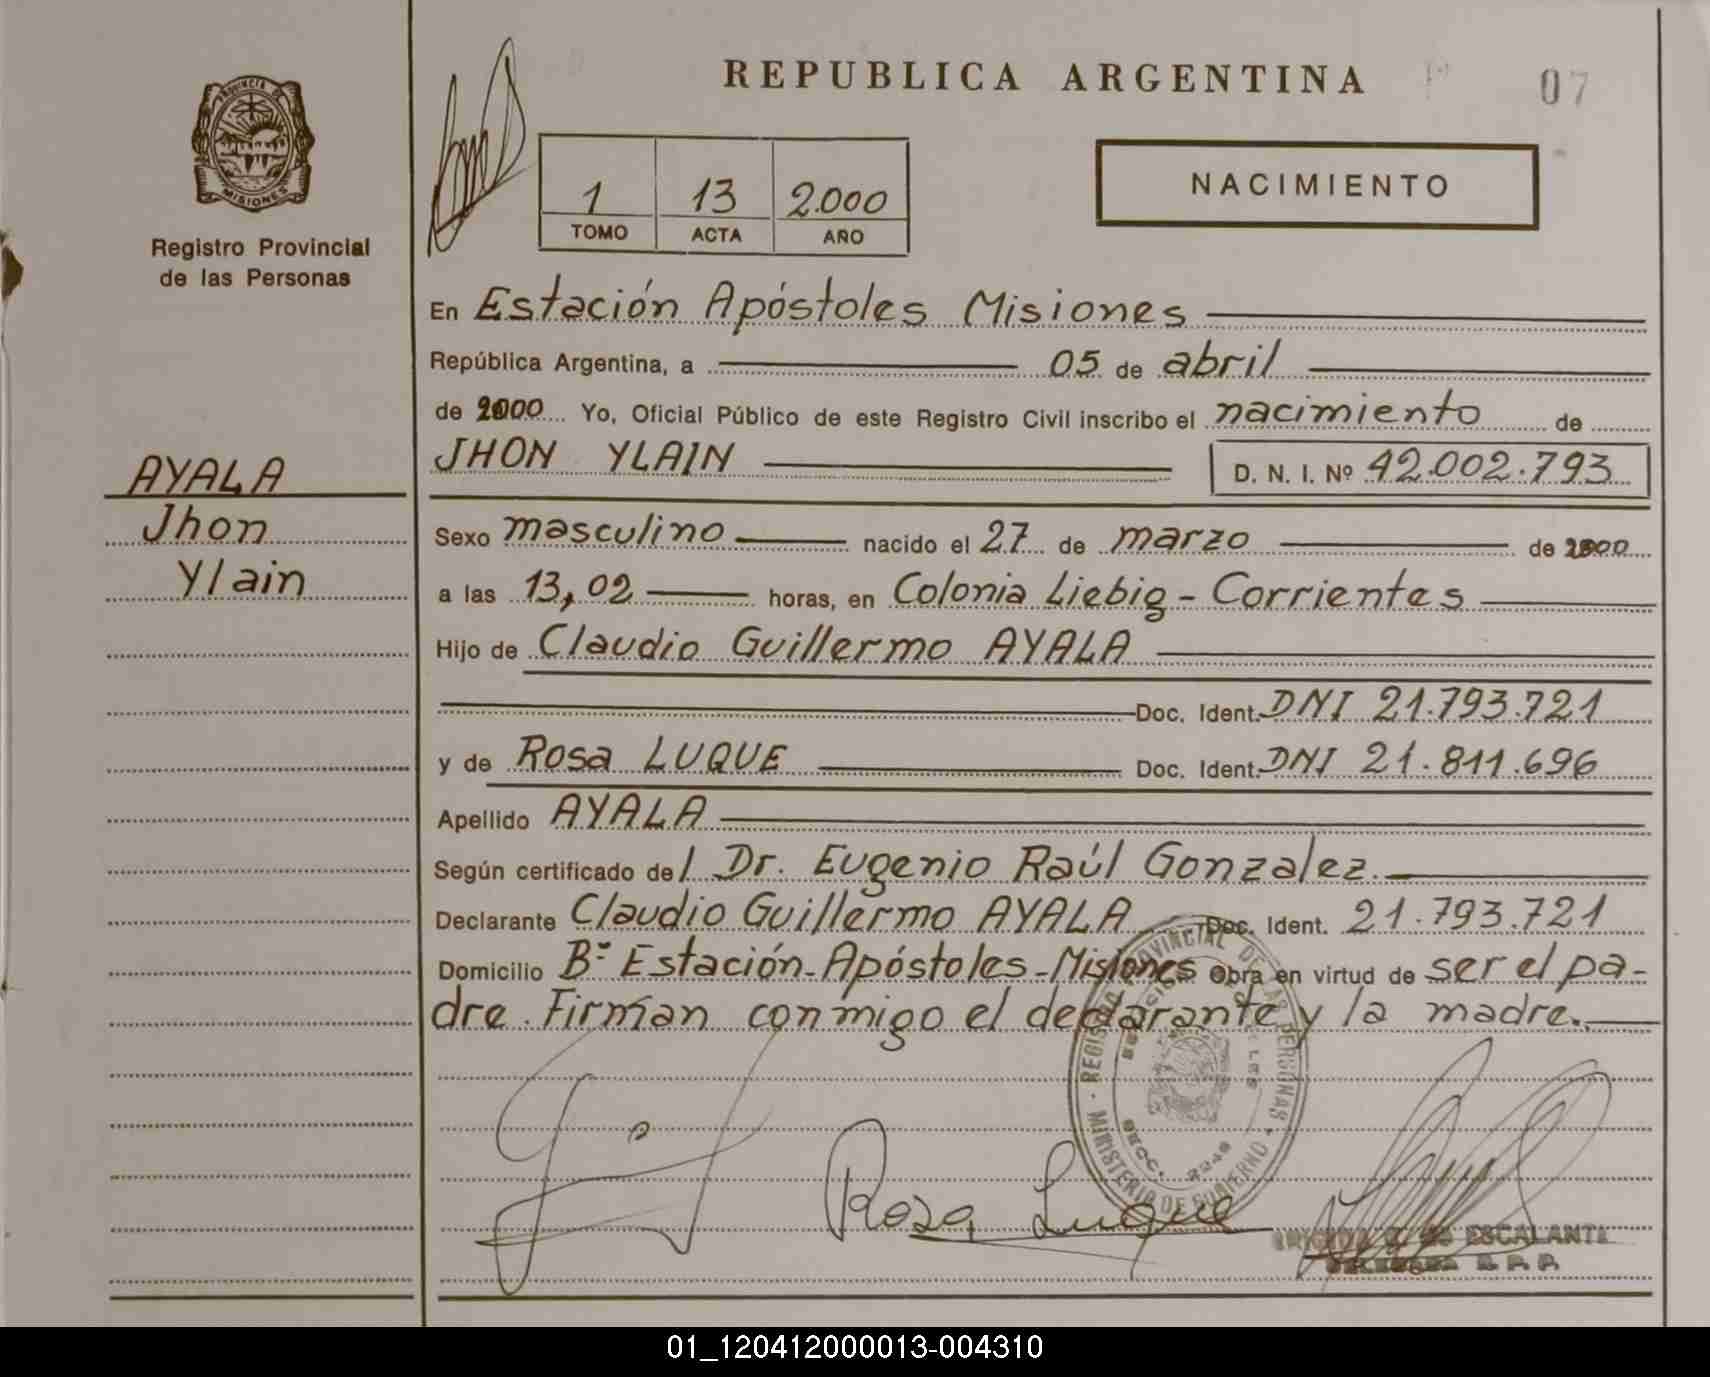 REPUBLICA ARGENTINA
07
PROVINCIA DE
MISIONES
Registro Provincial
de las Personas
1 13 2.000
TOMO ACTA AÑO
NACIMIENTO
En Estación Apóstoles Misiones
República Argentina, a 05 de abril
de 2000 Yo, Oficial Público de este Registro Civil inscribo el nacimiento de
JHON YLAIN D. N. I. Nº 42.002.793
AYALA
Jhon
Ylain
Sexo masculino nacido el 27 de marzo de 2000
a las 13,02 horas, en Colonia Liebig - Corrientes
Hijo de Claudio Guillermo AYALA
Doc. Ident. DNI 21.793.721
y de Rosa LUQUE Doc. Ident. DNI 21.811.696
Apellido AYALA
Según certificado del Dr. Eugenio Raúl Gonzalez.
Declarante Claudio Guillermo AYALA Doc. Ident. 21.793.721
Domicilio Bº Estación-Apóstoles-Misiones Obra en virtud de ser el pa-
dre. Firman conmigo el declarante y la madre.
REGISTRO PROVINCIAL DE LAS PERSONAS
MINISTERIO DE GOBIERNO
SECC.
Rosa Luque
DE ESCALANTE
R. P. P.
01_120412000013-004310